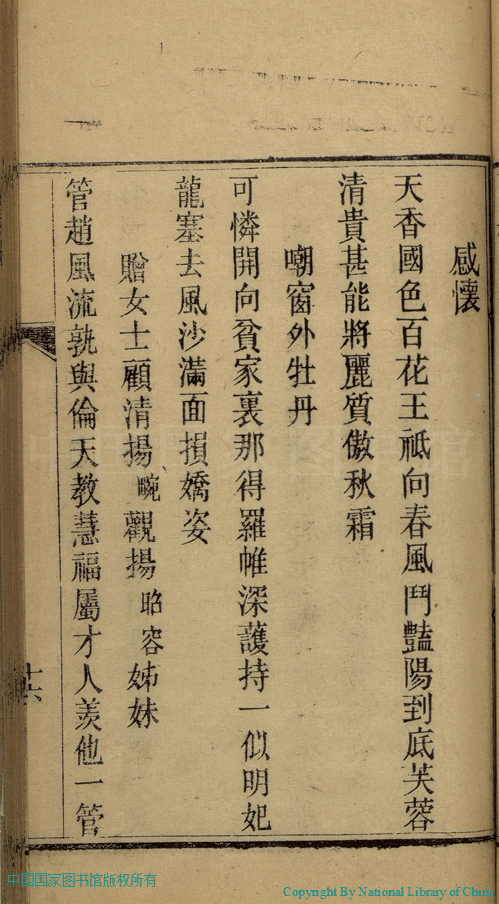 感懷
天香國色百花王祗向春風鬥豔陽到底芙蓉
清貴甚能將麗質傲秋霜
嘲窗外牡丹
可憐開向貧家裏那得羅帷深護持一似明妃
龍塞去風沙滿面損嬌姿
贈女士顧清揚畹觀揚昭容姊妹
管趙風流孰與倫天教慧福屬才人羨他一管
十六
中国国家图书馆版权所有
Copyright By National Library of China